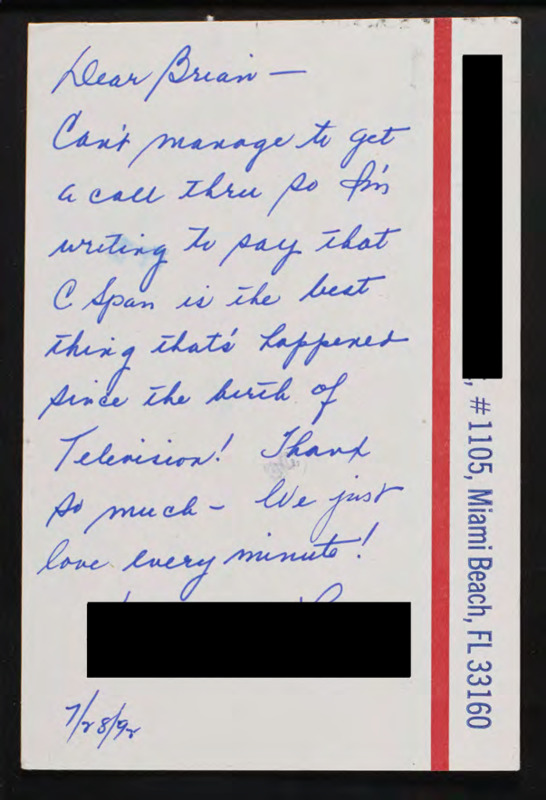 Dear Brian —
Can't manage to get
a call thru so I'm
writing to say that
C Span is the best
thing that's happened
since the birth of
Television! Thank
so much - We just
love every minute!
7/28/92
, #1105, Miami Beach, FL 33160